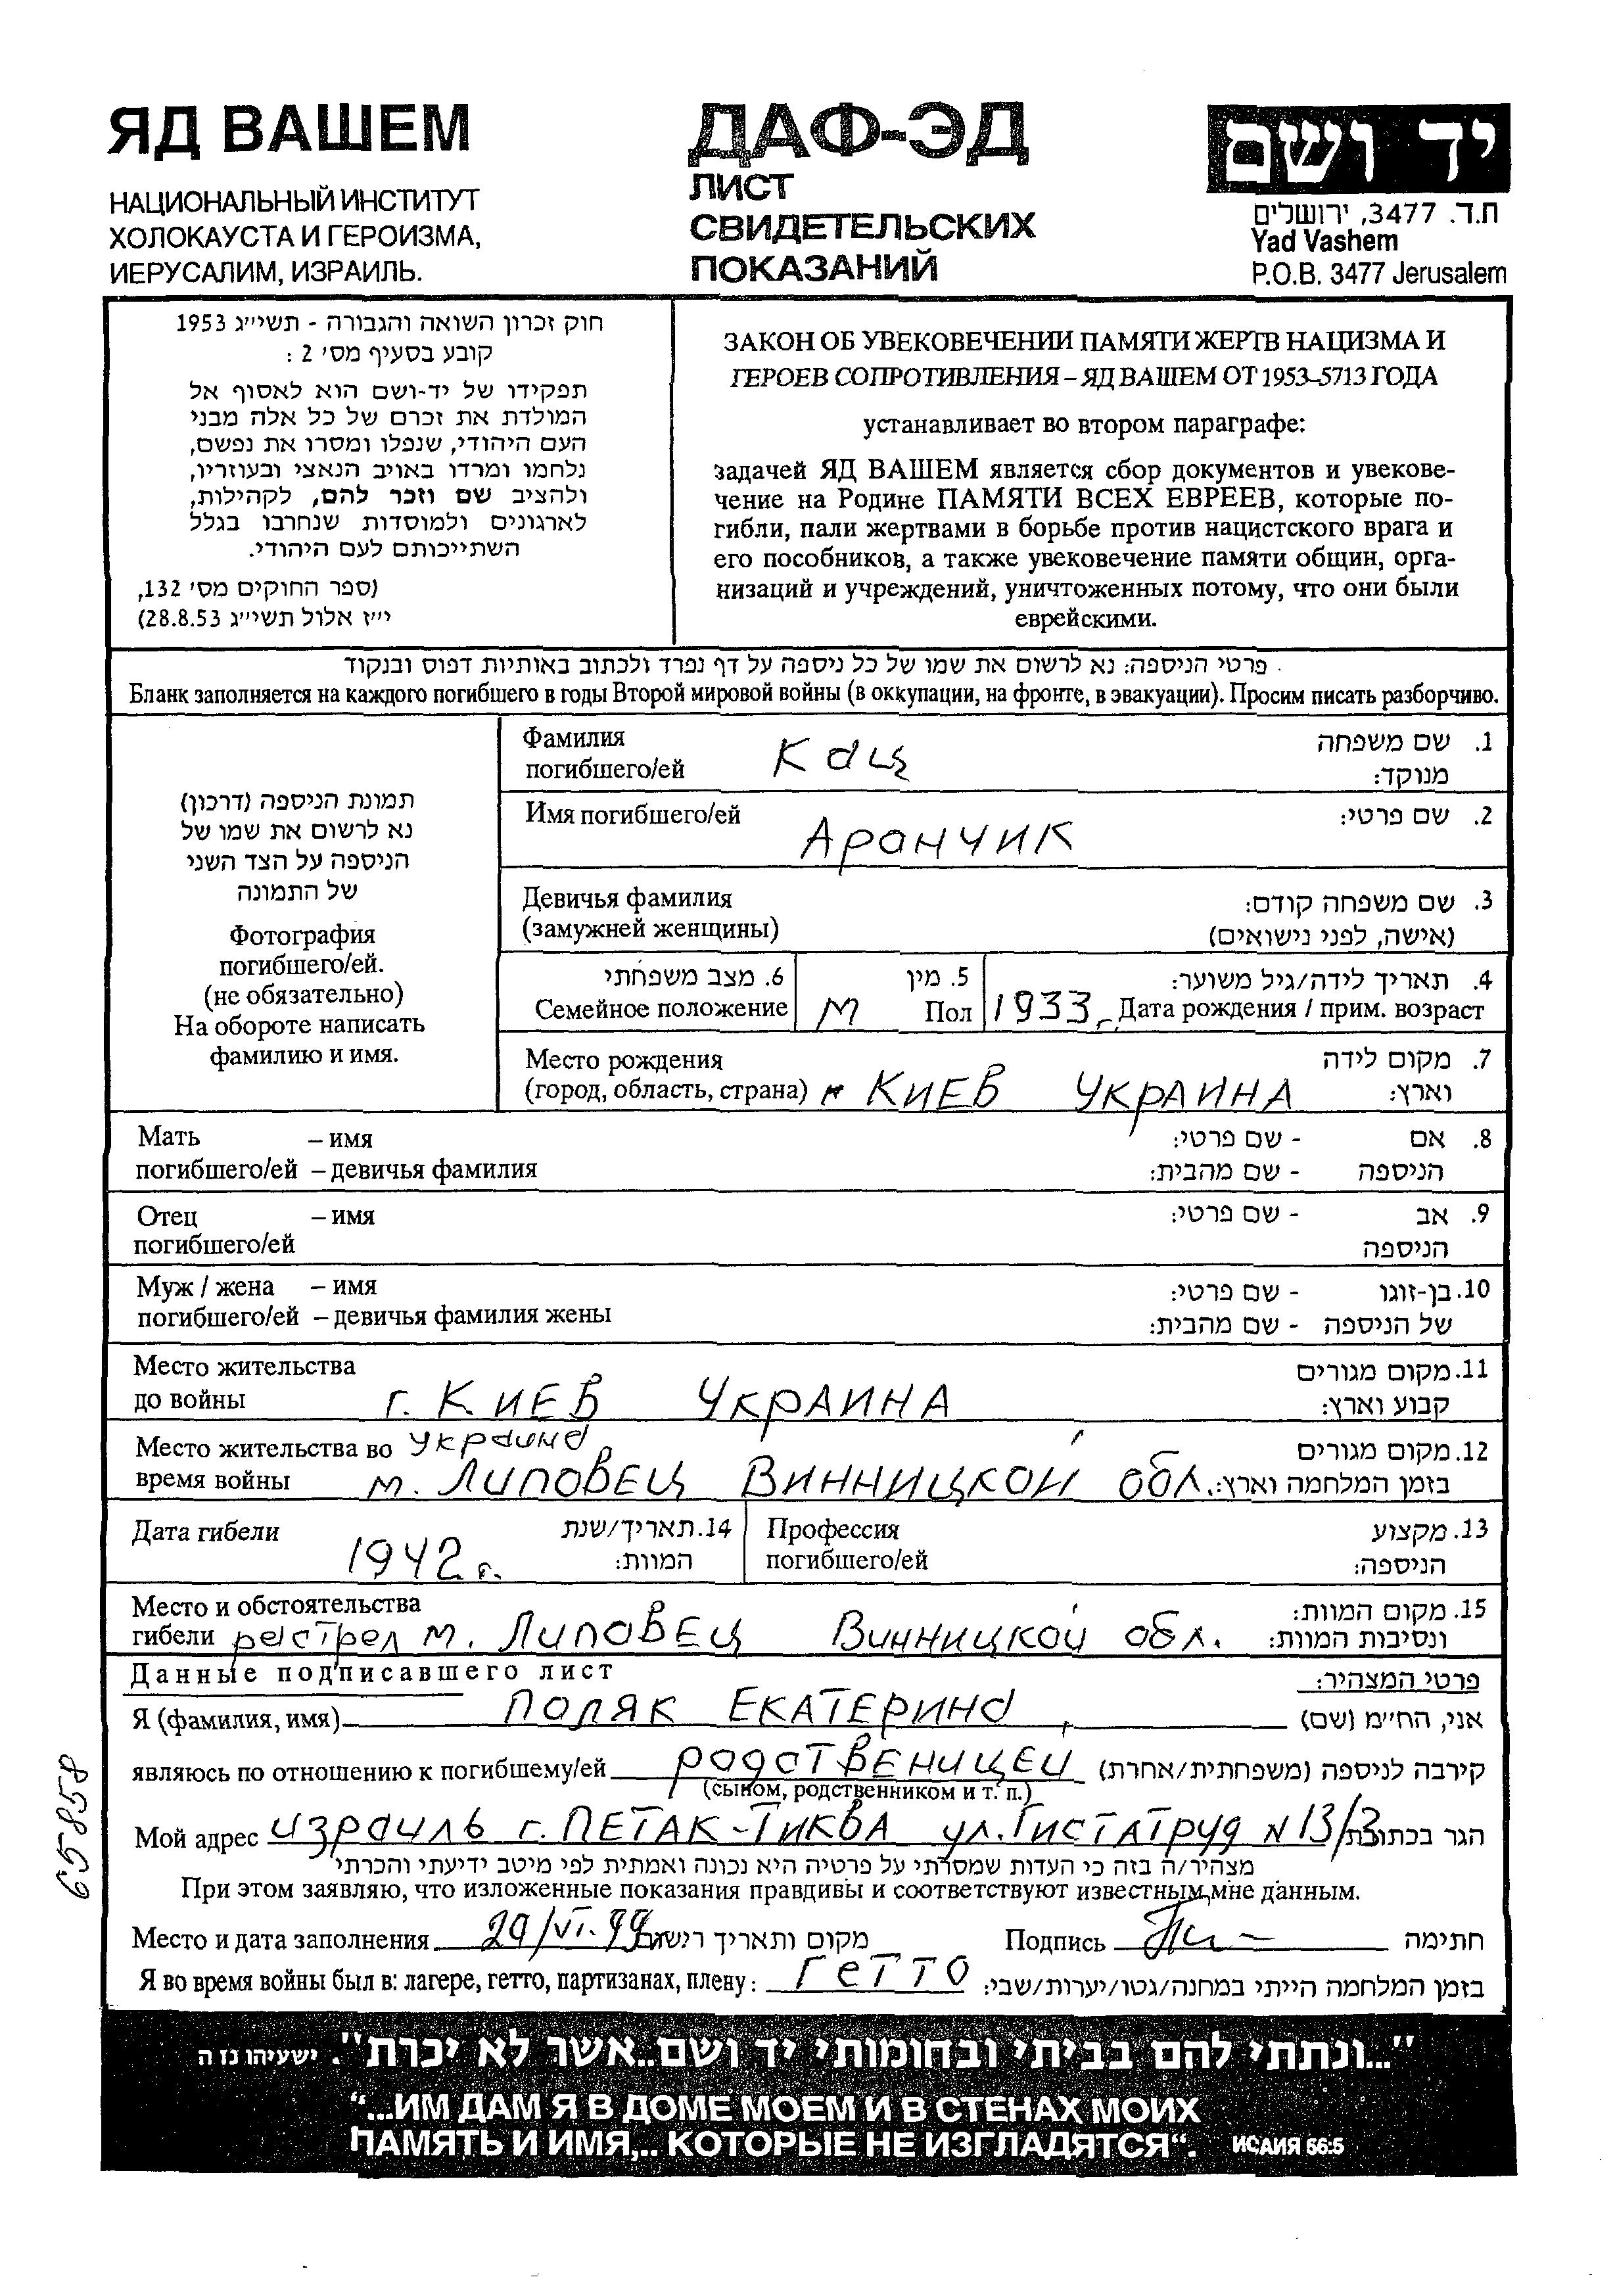 ЯД ВАШЕМ
НАЦИОНАЛЬНЫЙ ИНСТИТУТ
ХОЛОКАУСТА И ГЕРОИЗМА,
ИЕРУСАЛИМ, ИЗРАИЛЬ.
ДАФ-ЭД
ЛИСТ
СВИДЕТЕЛЬСКИХ
ПОКАЗАНИЙ
יד ושם
ת.ד. 3477, ירושלים
Yad Vashem
P.O.B. 3477 Jerusalem
חוק זכרון השואה והגבורה - תשי״ג 1953
קובע בסעיף מס׳ 2 :
תפקידו של יד-ושם הוא לאסוף אל
המולדת את זכרם של כל אלה מבני
העם היהודי, שנפלו ומסרו את נפשם,
נלחמו ומרדו באויב הנאצי ובעוזריו,
ולהציב שם וזכר להם, לקהילות,
לארגונים ולמוסדות שנחרבו בגלל
השתייכותם לעם היהודי.
(ספר החוקים מס׳ 132,
י״ז אלול תשי״ג 28.8.53)
ЗАКОН ОБ УВЕКОВЕЧЕНИИ ПАМЯТИ ЖЕРТВ НАЦИЗМА И
ГЕРОЕВ СОПРОТИВЛЕНИЯ – ЯД ВАШЕМ ОТ 1953–5713 ГОДА
устанавливает во втором параграфе:
задачей ЯД ВАШЕМ является сбор документов и увекове-
чение на Родине ПАМЯТИ ВСЕХ ЕВРЕЕВ, которые по-
гибли, пали жертвами в борьбе против нацистского врага и
его пособников, а также увековечение памяти общин, орга-
низаций и учреждений, уничтоженных потому, что они были
еврейскими.
פרטי הניספה: נא לרשום את שמו של כל ניספה על דף נפרד ולכתוב באותיות דפוס ובנקוד
Бланк заполняется на каждого погибшего в годы Второй мировой войны (в оккупации, на фронте, в эвакуации). Просим писать разборчиво.
תמונת הניספה (דרכון)
נא לרשום את שמו של
הניספה על הצד השני
של התמונה
Фотография
погибшего/ей.
(не обязательно)
На обороте написать
фамилию и имя.
Фамилия 1. שם משפחה
погибшего/ей Кац מנוקד:
Имя погибшего/ей 2. שם פרטי:
АРОНЧИК
Девичья фамилия 3. שם משפחה קודם:
(замужней женщины) (אישה, לפני נישואים)
6. מצב משפחתי 5. מין 4. תאריך לידה/גיל משוער:
Семейное положение М Пол 1933г. Дата рождения / прим. возраст
Место рождения 7. מקום לידה
(город, область, страна) КИЕВ УКРАИНА וארץ:
Мать – имя - שם פרטי: 8. אם
погибшего/ей – девичья фамилия - שם מהבית: הניספה
Отец – имя - שם פרטי: 9. אב
погибшего/ей הניספה
Муж / жена – имя - שם פרטי: 10. בן-זוגו
погибшего/ей – девичья фамилия жены - שם מהבית: של הניספה
Место жительства 11. מקום מגורים
до войны г. КИЕВ УКРАИНА קבוע וארץ:
Место жительства во Украина 12. מקום מגורים
время войны м. ЛИПОВЕЦ ВИННИЦКОЙ обл. בזמן המלחמה וארץ:
Дата гибели 14. תאריך/שנת Профессия 13. מקצוע
1942г. המוות: погибшего/ей הניספה:
Место и обстоятельства 15. מקום המוות:
гибели растрел м. ЛИПОВЕЦ Винницкой обл. ונסיבות המוות:
Данные подписавшего лист פרטי המצהיר:
Я (фамилия, имя) ПОЛЯК ЕКАТЕРИНА אני, הח״מ (שם)
являюсь по отношению к погибшему/ей родственицей קירבה לניספה (משפחתית/אחרת)
(сыном, родственником и т. п.)
Мой адрес израиль г. ПЕТАК-ТИКВА ул. Гистатруд N 13/3 הגר בכתובת
מצהיר/ה בזה כי העדות שמסרתי על פרטיה היא נכונה ואמתית לפי מיטב ידיעתי והכרתי
При этом заявляю, что изложенные показания правдивы и соответствуют известным мне данным.
Место и дата заполнения 29/VI.99 מקום ותאריך רישום Подпись חתימה
Я во время войны был в: лагере, гетто, партизанах, плену: ГЕТТО בזמן המלחמה הייתי במחנה/גטו/יערות/שבי:
65858
"...ונתתי להם בביתי ובחומותי יד ושם..אשר לא יכרת". ישעיהו נו ה
"...ИМ ДАМ Я В ДОМЕ МОЕМ И В СТЕНАХ МОИХ
ПАМЯТЬ И ИМЯ,.. КОТОРЫЕ НЕ ИЗГЛАДЯТСЯ". ИСАИЯ 56:5